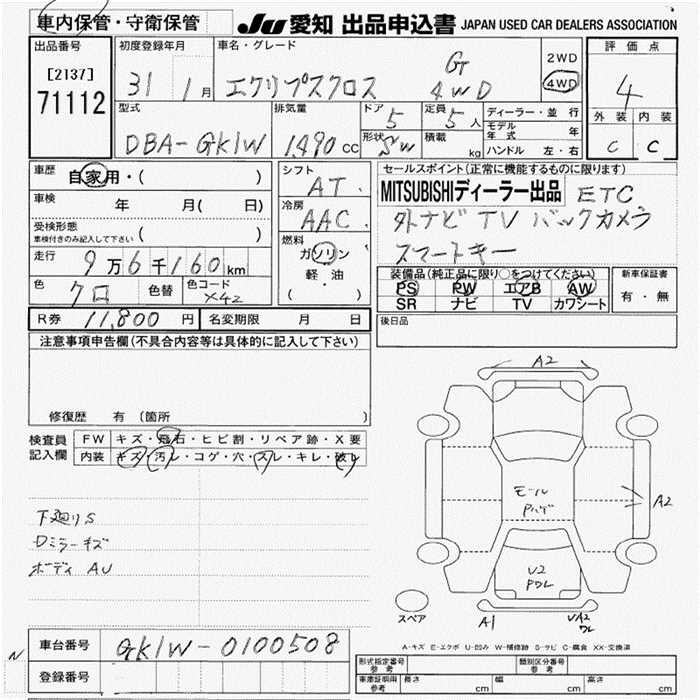 車内保管・守衛保管
JU 愛知 出品申込書 JAPAN USED CAR DEALERS ASSOCIATION
出品番号
[2137]
71112
初度登録年月
31 1月
車名・グレード
エクリプスクロス G 4WD
2WD
4WD
評価点
4
外装 内装
C C
型式
DBA-GK1W
排気量
1,490 cc
ドア 5
形状 SW
定員 5 人
積載 kg
ディーラー・並行
モデル年式 年
ハンドル 左・右
車歴 自家用・( )
車検 年 月( 日)
受検形態
車検付きのみ記入して下さい ( )
走行 9万6千160km
色 クロ 色替 色コード X42
シフト
AT
冷房
AAC
燃料
ガソリン
軽・油
(・ )
セールスポイント(正常に機能するものに限ります)
MITSUBISHIディーラー出品 ETC
外ナビ TV バックカメラ
スマートキー
装備品(純正品に限り○をつけてください)
PS PW エアB AW
SR ナビ TV カワシート
新車保証書
有・無
後日品
R券 11,800 円 名変期限 月 日
注意事項申告欄(不具合内容等は具体的に記入して下さい)
修復歴 有 (箇所
検査員記入欄
FW キズ・飛石・ヒビ割・リペア跡・X要
内装 キズ・汚レ・コゲ・穴・スレ・キレ・破レ
下廻りS
Dミラーキズ
ボディ AU
A2
モール
Pハゲ
A2
U2
PWレ
スペア
A1
UA2
ワレ
A-キズ E-エクボ U-凹み W-補修跡 S-サビ C-腐食 XX-交換済
N
車台番号 GK1W-0100508
登録番号
形式指定番号 参考
類別区分番号 参考
車庫証明用 参考 長さ cm 幅 cm 高さ cm